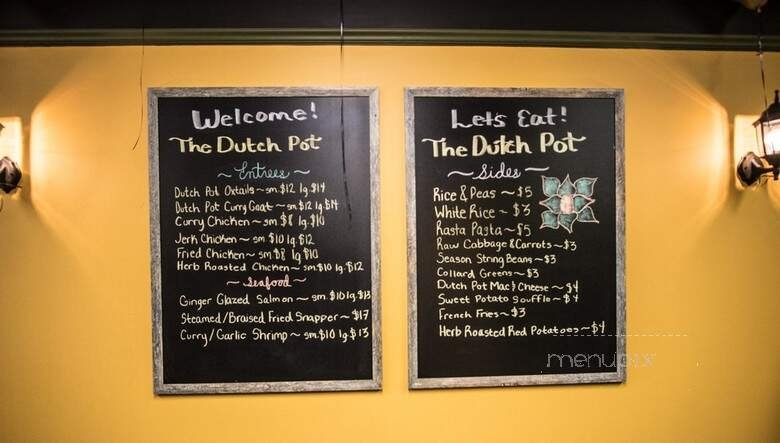 Welcome!
The Dutch Pot
~Entrees~
Dutch Pot Oxtails~sm.$12 lg.$14
Dutch Pot Curry Goat~sm.$12 lg.$14
Curry Chicken~sm $8 lg.$10
Jerk Chicken~sm $10 lg.$12
Fried Chicken~sm.$8 lg.$10
Herb Roasted Chicken~sm.$10 lg.$12
~Seafood~
Ginger Glazed Salmon~sm.$10 lg.$13
Steamed/Braised Fried Snapper~$17
Curry/Garlic Shrimp~sm.$10 lg.$13
Lets Eat!
The Dutch Pot
~Sides~
Rice & Peas~$5
White Rice~$3
Rasta Pasta~$5
Raw Cabbage & Carrots~$3
Season String Beans~$3
Collard Greens~$3
Dutch Pot Mac & Cheese~$4
Sweet Potato Souffle~$4
French Fries~$3
Herb Roasted Red Potatoes~$4
menupix